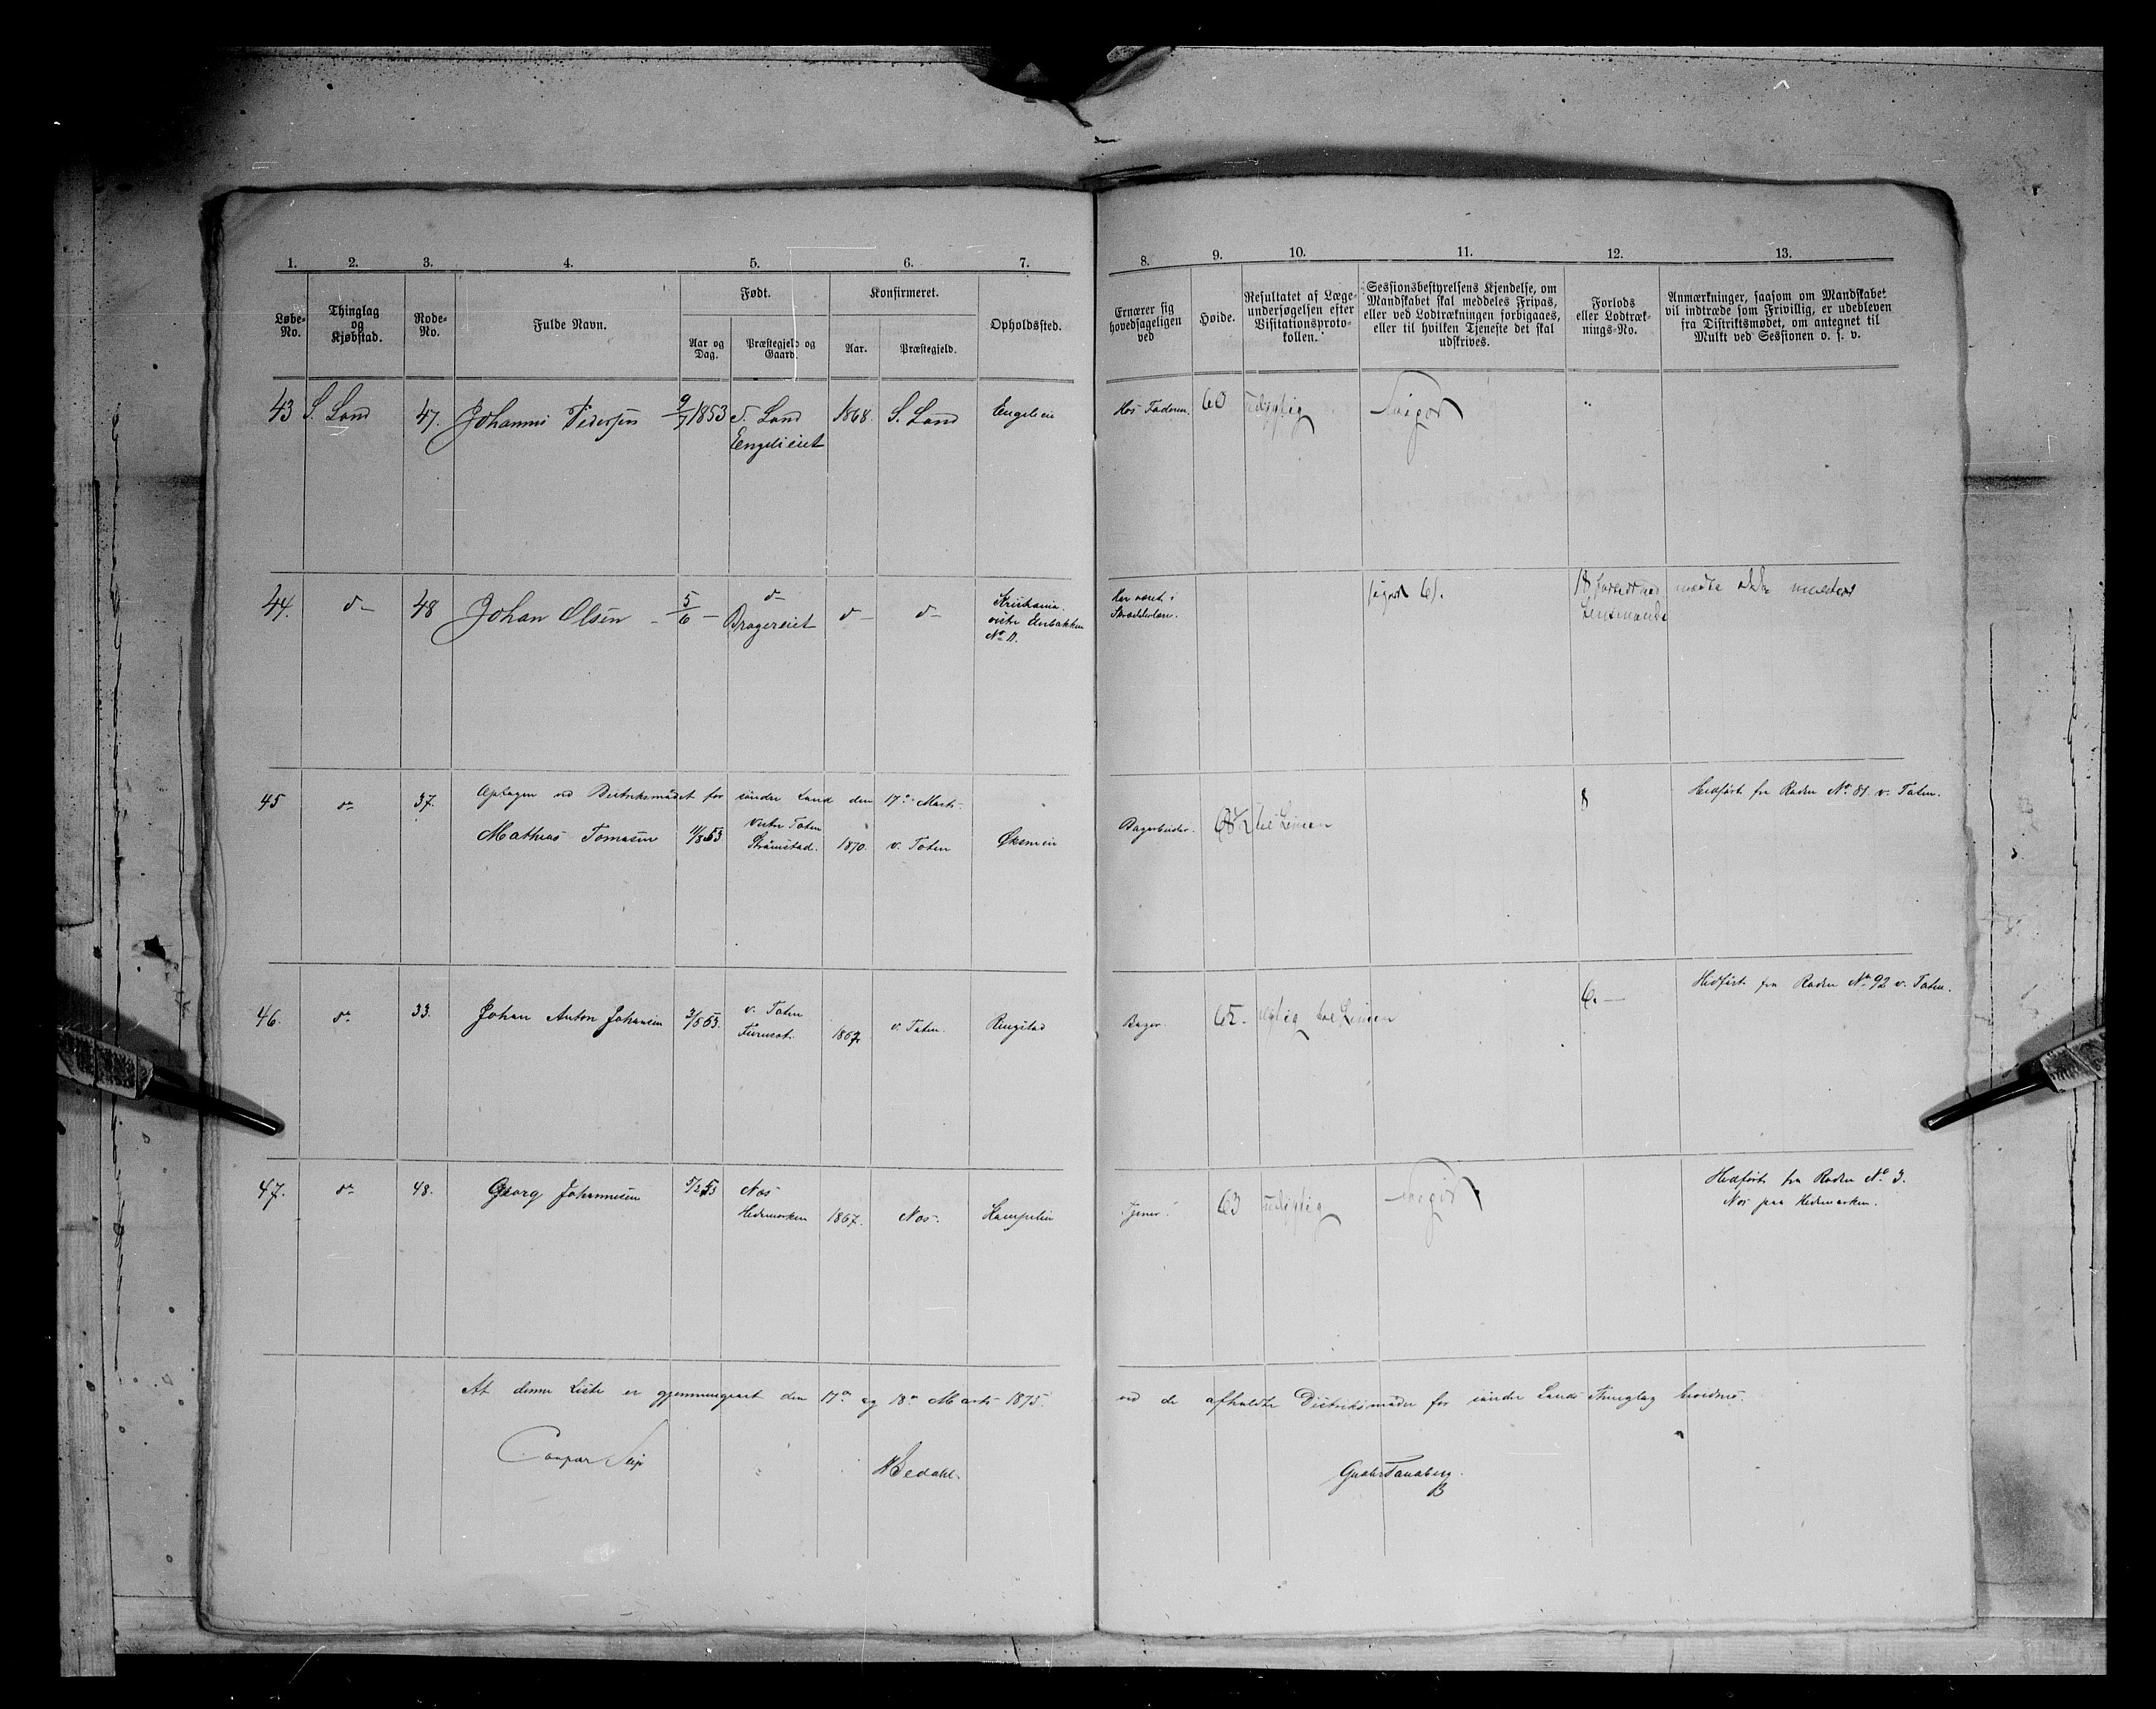 1. 2. 3. 4. 5. 6. 7. 8. 9. 10. 11. 12. 13.
Løbe-No.
Thinglag og Kjøbstad.
Rode-No.
Fulde Navn.
Født.
Aar og Dag.
Præstegjeld og Gaard.
Konfirmeret.
Aar.
Præstegjeld.
Opholdssted.
Ernærer sig hovedsageligen ved
Høide.
Resultatet af Læge-undersøgelsen efter Visitationsproto-kollen.
Sessionsbestyrelsens Kjendelse, om Mandskabet skal meddeles Fripas, eller ved Lodtrækningen forbigaaes, eller til hvilken Tjeneste det skal udskrives.
Forlods eller Lodtræk-nings-No.
Anmærkninger, saasom om Mandskabet vil indtræde som Frivillig, er udebleven fra Distriktsmødet, om antegnet til Mulkt ved Sessionen o. s. v.
43 S. Land 47. Johannes Pedersen 9/7 1853 S. Land 1868. S. Land Engelieie Hos Faderen. 60 udygtig "
Engelieiet
44. d– 48 Johan Olsen – 5/6 – d– d– d– Kristiania Har været i
Bragereiet østre Skrædderlære.
No
Lensmande
45 do 37. Optagen ved Distriktsmødet for søndre Land den 17de Marts. 8 Hidført fra Roden No 81 v. Toten.
Mathias Tomasen 11/8 53 Vestre Toten 1870. v. Toten til Linien
46. do 33. Johan Anton Johansen 3/5 53. v. Toten 1867. v. Toten. Ringstad Bager. 65. dygtig til Linien 6. – Hidført fra Roden No 92 v. Toten.
47. do 48. Georg Johannesen 5/2 53 Nes 1867. Nes. Tjener. 63 udygtig Hidført fra Roden No 3.
Hedemarken Nes paa Hedemarken.
At denne Liste er gjennemgaaet den 17de og 18de Marts 1875. ved de afholdte Distriktsmøder for søndre Lands Thinglag bevidnes.
Caspar Seip